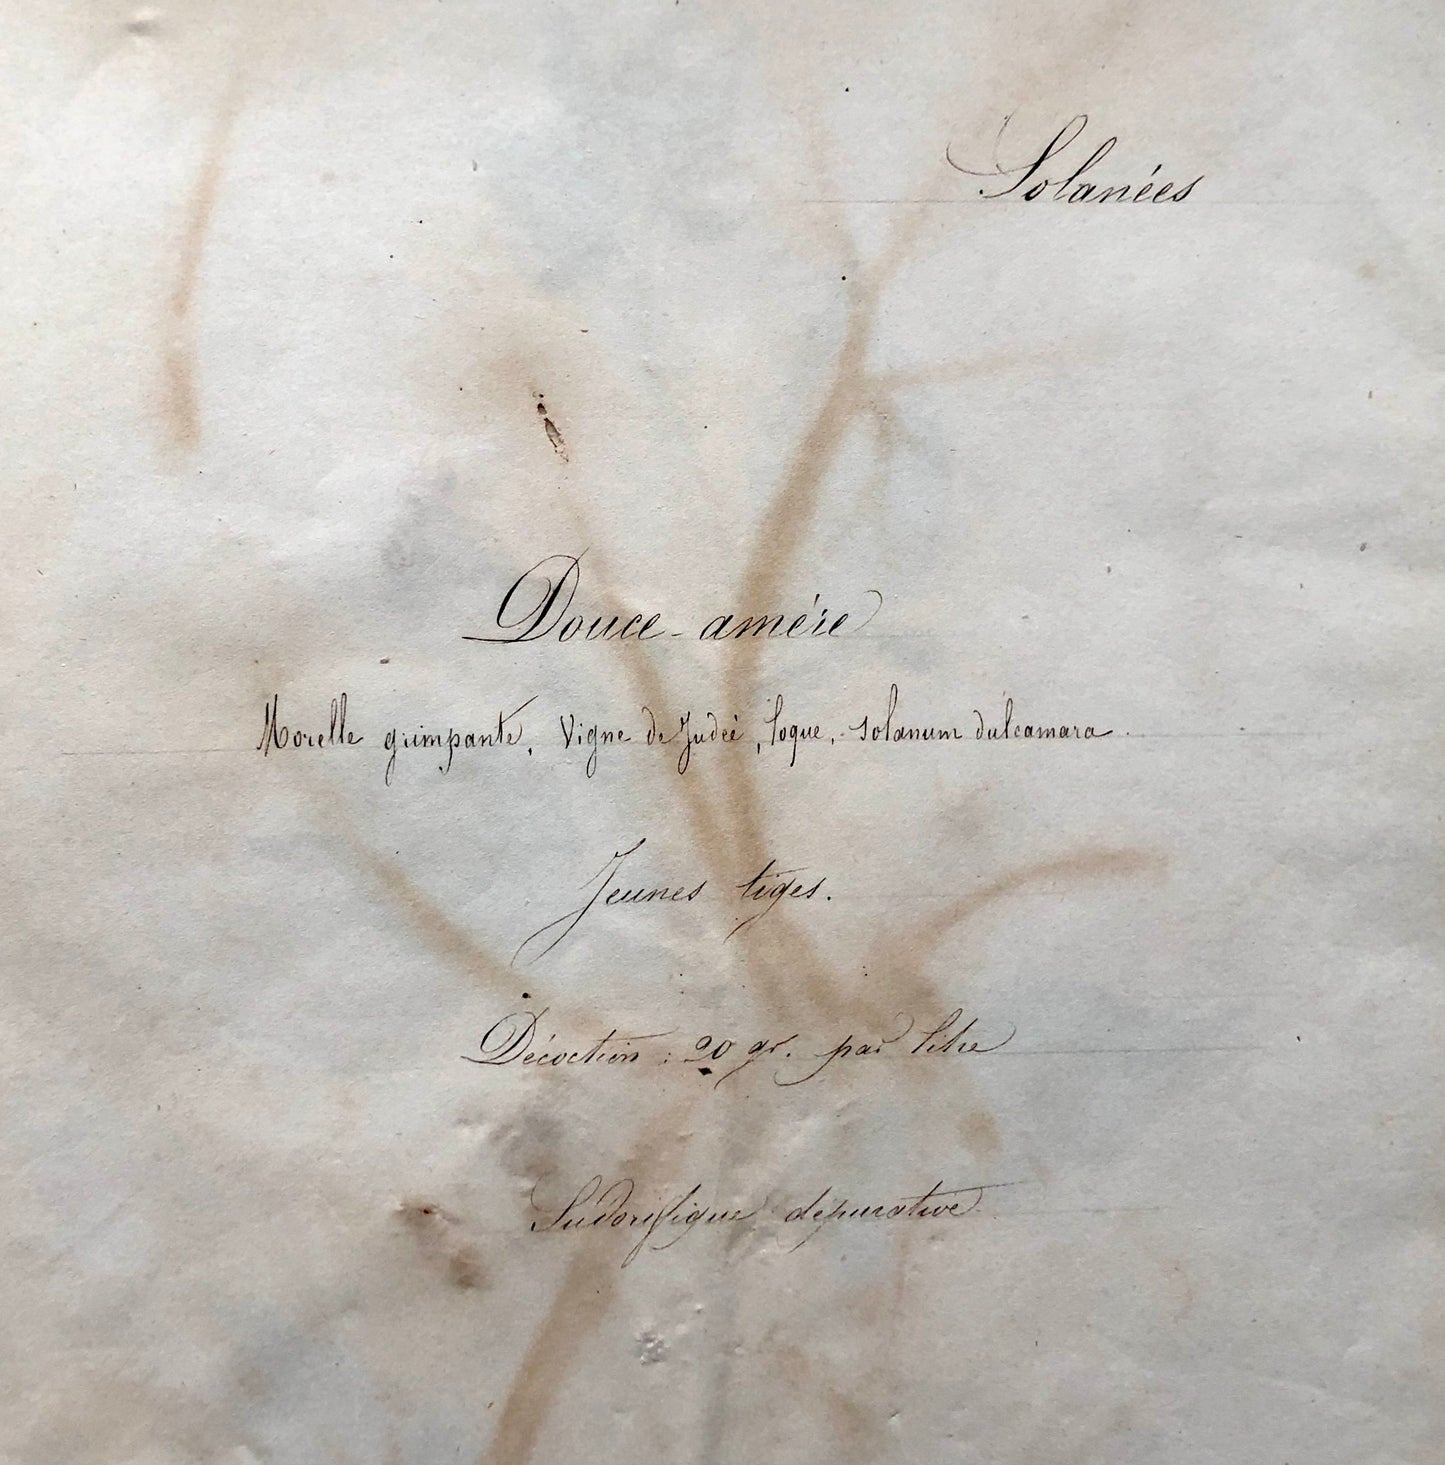 Solanées
Douce-amére
Morelle grimpante, Vigne de Judée, loque, solanum dulcamara
Jeunes tiges.
Décoction : 20 gr. par litre
Sudorifique dépurative